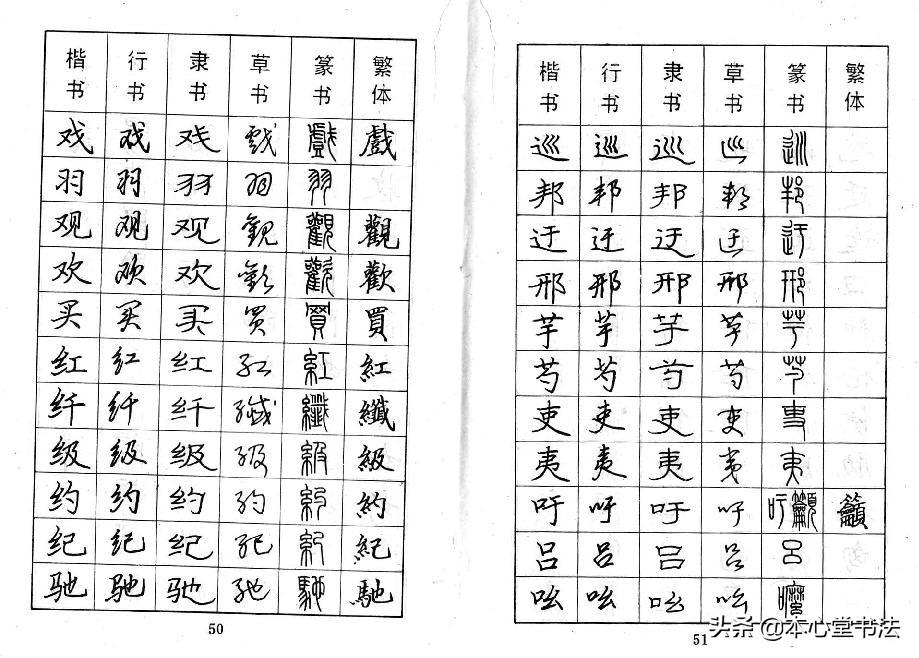 楷书 行书 隶书 草书 篆书 繁体
戏 戏 戏 戏 戲 戲
羽 羽 羽 羽 羽
观 观 观 觀 觀 觀
欢 欢 欢 歡 歡 歡
买 买 买 買 買 買
红 红 红 红 紅 紅
纤 纤 纤 纖 纖 纖
级 级 级 级 級 級
约 约 约 约 約 約
纪 纪 纪 纪 紀 紀
驰 驰 驰 驰 馳 馳
50
楷书 行书 隶书 草书 篆书 繁体
巡 巡 巡 巡 巡
邦 邦 邦 邦 邦
迂 迂 迂 迂 迂
邢 邢 邢 邢 邢
芋 芋 芋 芋 芋
芍 芍 芍 芍 芍
吏 吏 吏 吏 吏
夷 夷 夷 夷 夷
吁 吁 吁 吁 吁籲 籲
吕 吕 吕 吕 吕
吆 吆 吆 吆
51
头条 @本心堂书法